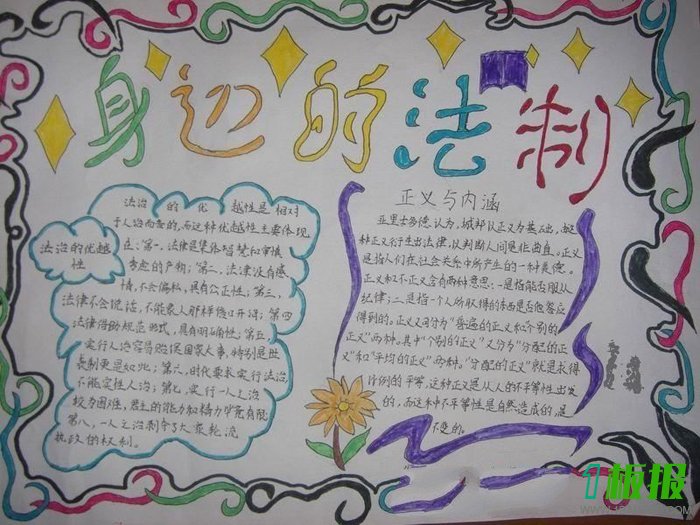 身边的法制
法治的优越
性
法治的优越性是相对
于人治而言的,而这种优越性主要体现
在:第一,法律是集体智慧和审慎
考虑的产物;第二,法律没有感
情,不会偏私,具有公正性;第三,
法律不会说话,不能象人那样信口开河;第四
法律借助规范形式,具有明确性;第五,
实行人治容易贻误国家大事,特别是世
袭制更是如此;第六,时代要求实行法治
不能实行人治;第七,实行一人之治
较为困难,君主的能力和精力毕竟有限
第八,一人之治剥夺了大家轮流
执政的权利。
正义与内涵
亚里士多德认为,城邦以正义为基础,
种正义衍生出法律,以判断人间是非曲直。正义
是指人们在社会关系中所产生的一种美德。
正义和不正义含有两种意思:一是指能否服从
纪律;二是指一个人所取得的东西是否他答应
得到的。正义又可分为"普遍的正义和个别的
正义"两种。其中"个别的正义"又分为"分配的正
义"和"平均的正义"两种。"分配的正义"就是求得
比例的平等,这种正义是从人的不平等性出发
的,而这种不平等性是自然造成的,是
不变的。
1板报